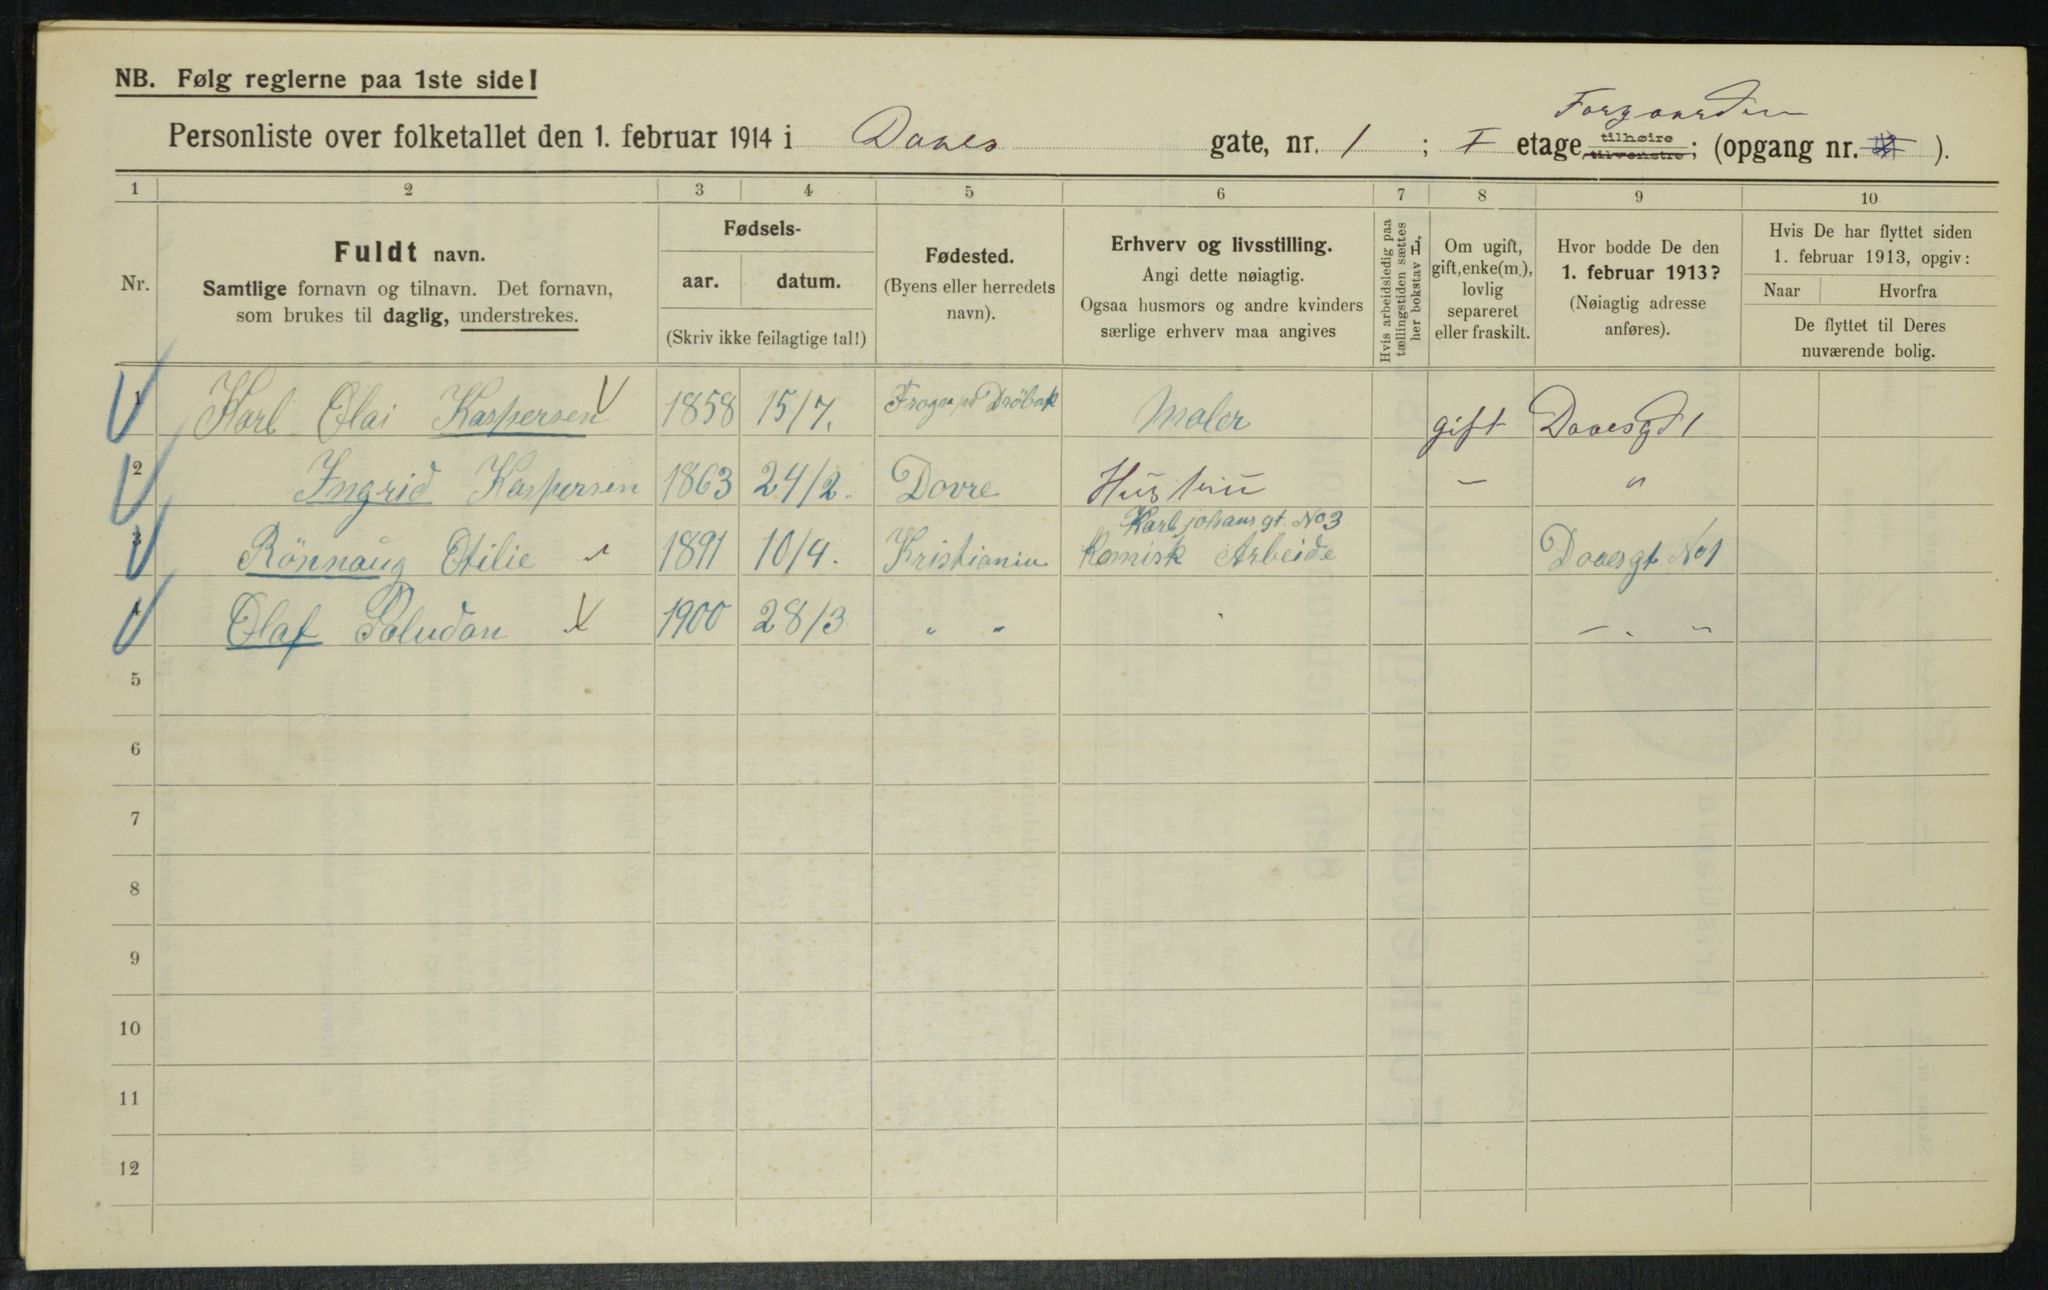 NB. Følg reglerne paa 1ste side!
Forgaarden
Personliste over folketallet den 1. februar 1914 i Daaes gate, nr. 1; I etage tilhøire tilvenstre; (opgang nr. ).
1 2 3 4 5 6 7 8 9 10
Nr.
Fuldt navn.
Samtlige fornavn og tilnavn. Det fornavn,
som brukes til daglig, understrekes.
Fødsels-
aar. datum.
(Skriv ikke feilagtige tal!)
Fødested.
(Byens eller herredets
navn).
Erhverv og livsstilling.
Angi dette nøiagtig.
Ogsaa husmors og andre kvinders
særlige erhverv maa angives
Hvis arbeidsledig paa
tællingstiden sættes
her bokstav L.
Om ugift,
gift, enke(m.),
lovlig
separeret
eller fraskilt.
Hvor bodde De den
1. februar 1913?
(Nøiagtig adresse
anføres).
Hvis De har flyttet siden
1. februar 1913, opgiv:
Naar Hvorfra
De flyttet til Deres
nuværende bolig.
1 Karl Olai Kaspersen 1858 15/7. Frogn Drøbak Maler gift Daaesgt 1
2 Ingrid Kaspersen 1863 24/2. Dovre Hustru - "
Karl johans gt. No 3
3 Rönnaug Otilie 1891 10/4. Kristiania Komisk Arbeide Daaesgt. No 1
4 Olaf Paludan 1900 28/3 " " - " "
5
6
7
8
9
10
11
12